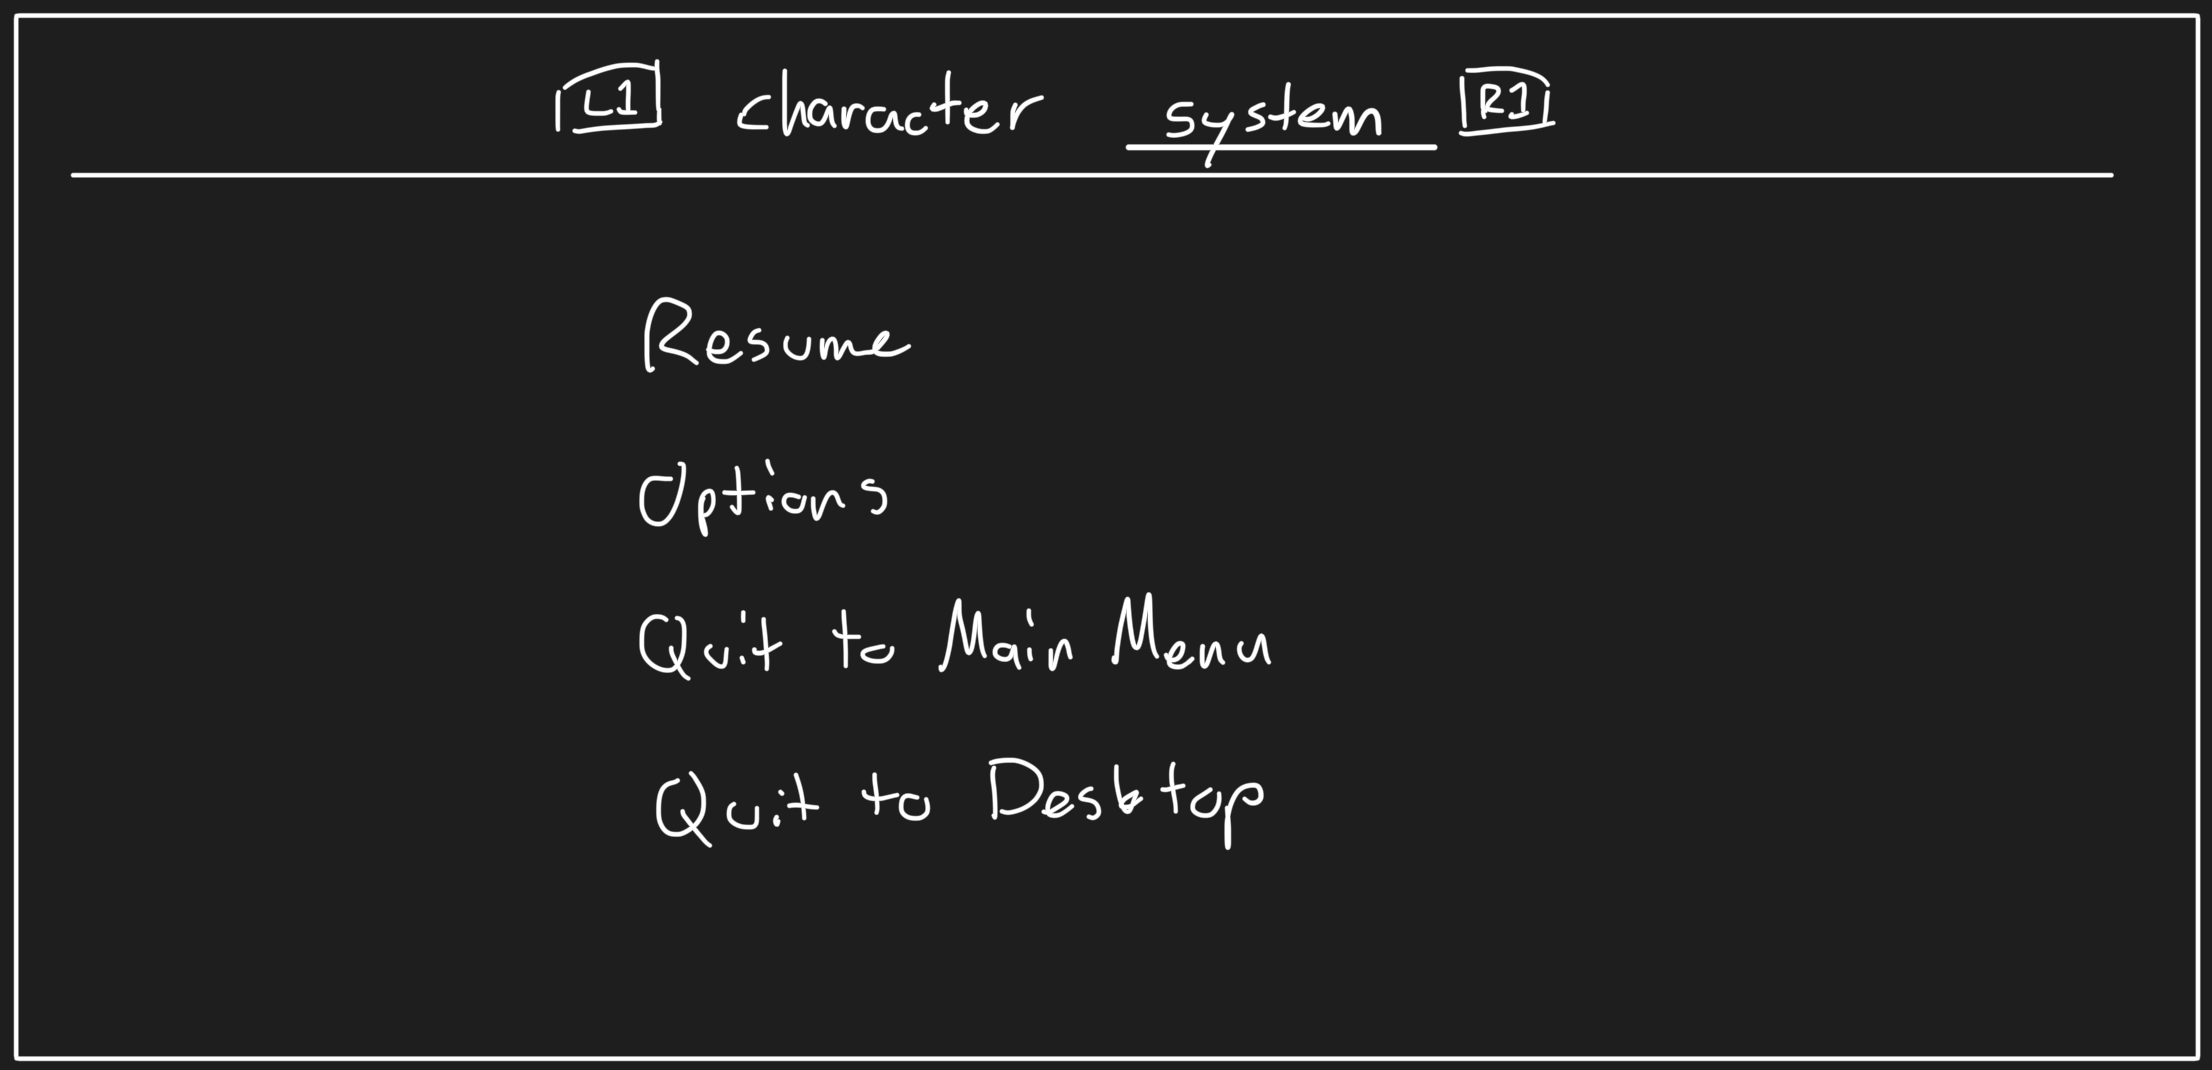 L1 character system R1
Resume
Options
Quit to Main Menu
Quit to Desktop